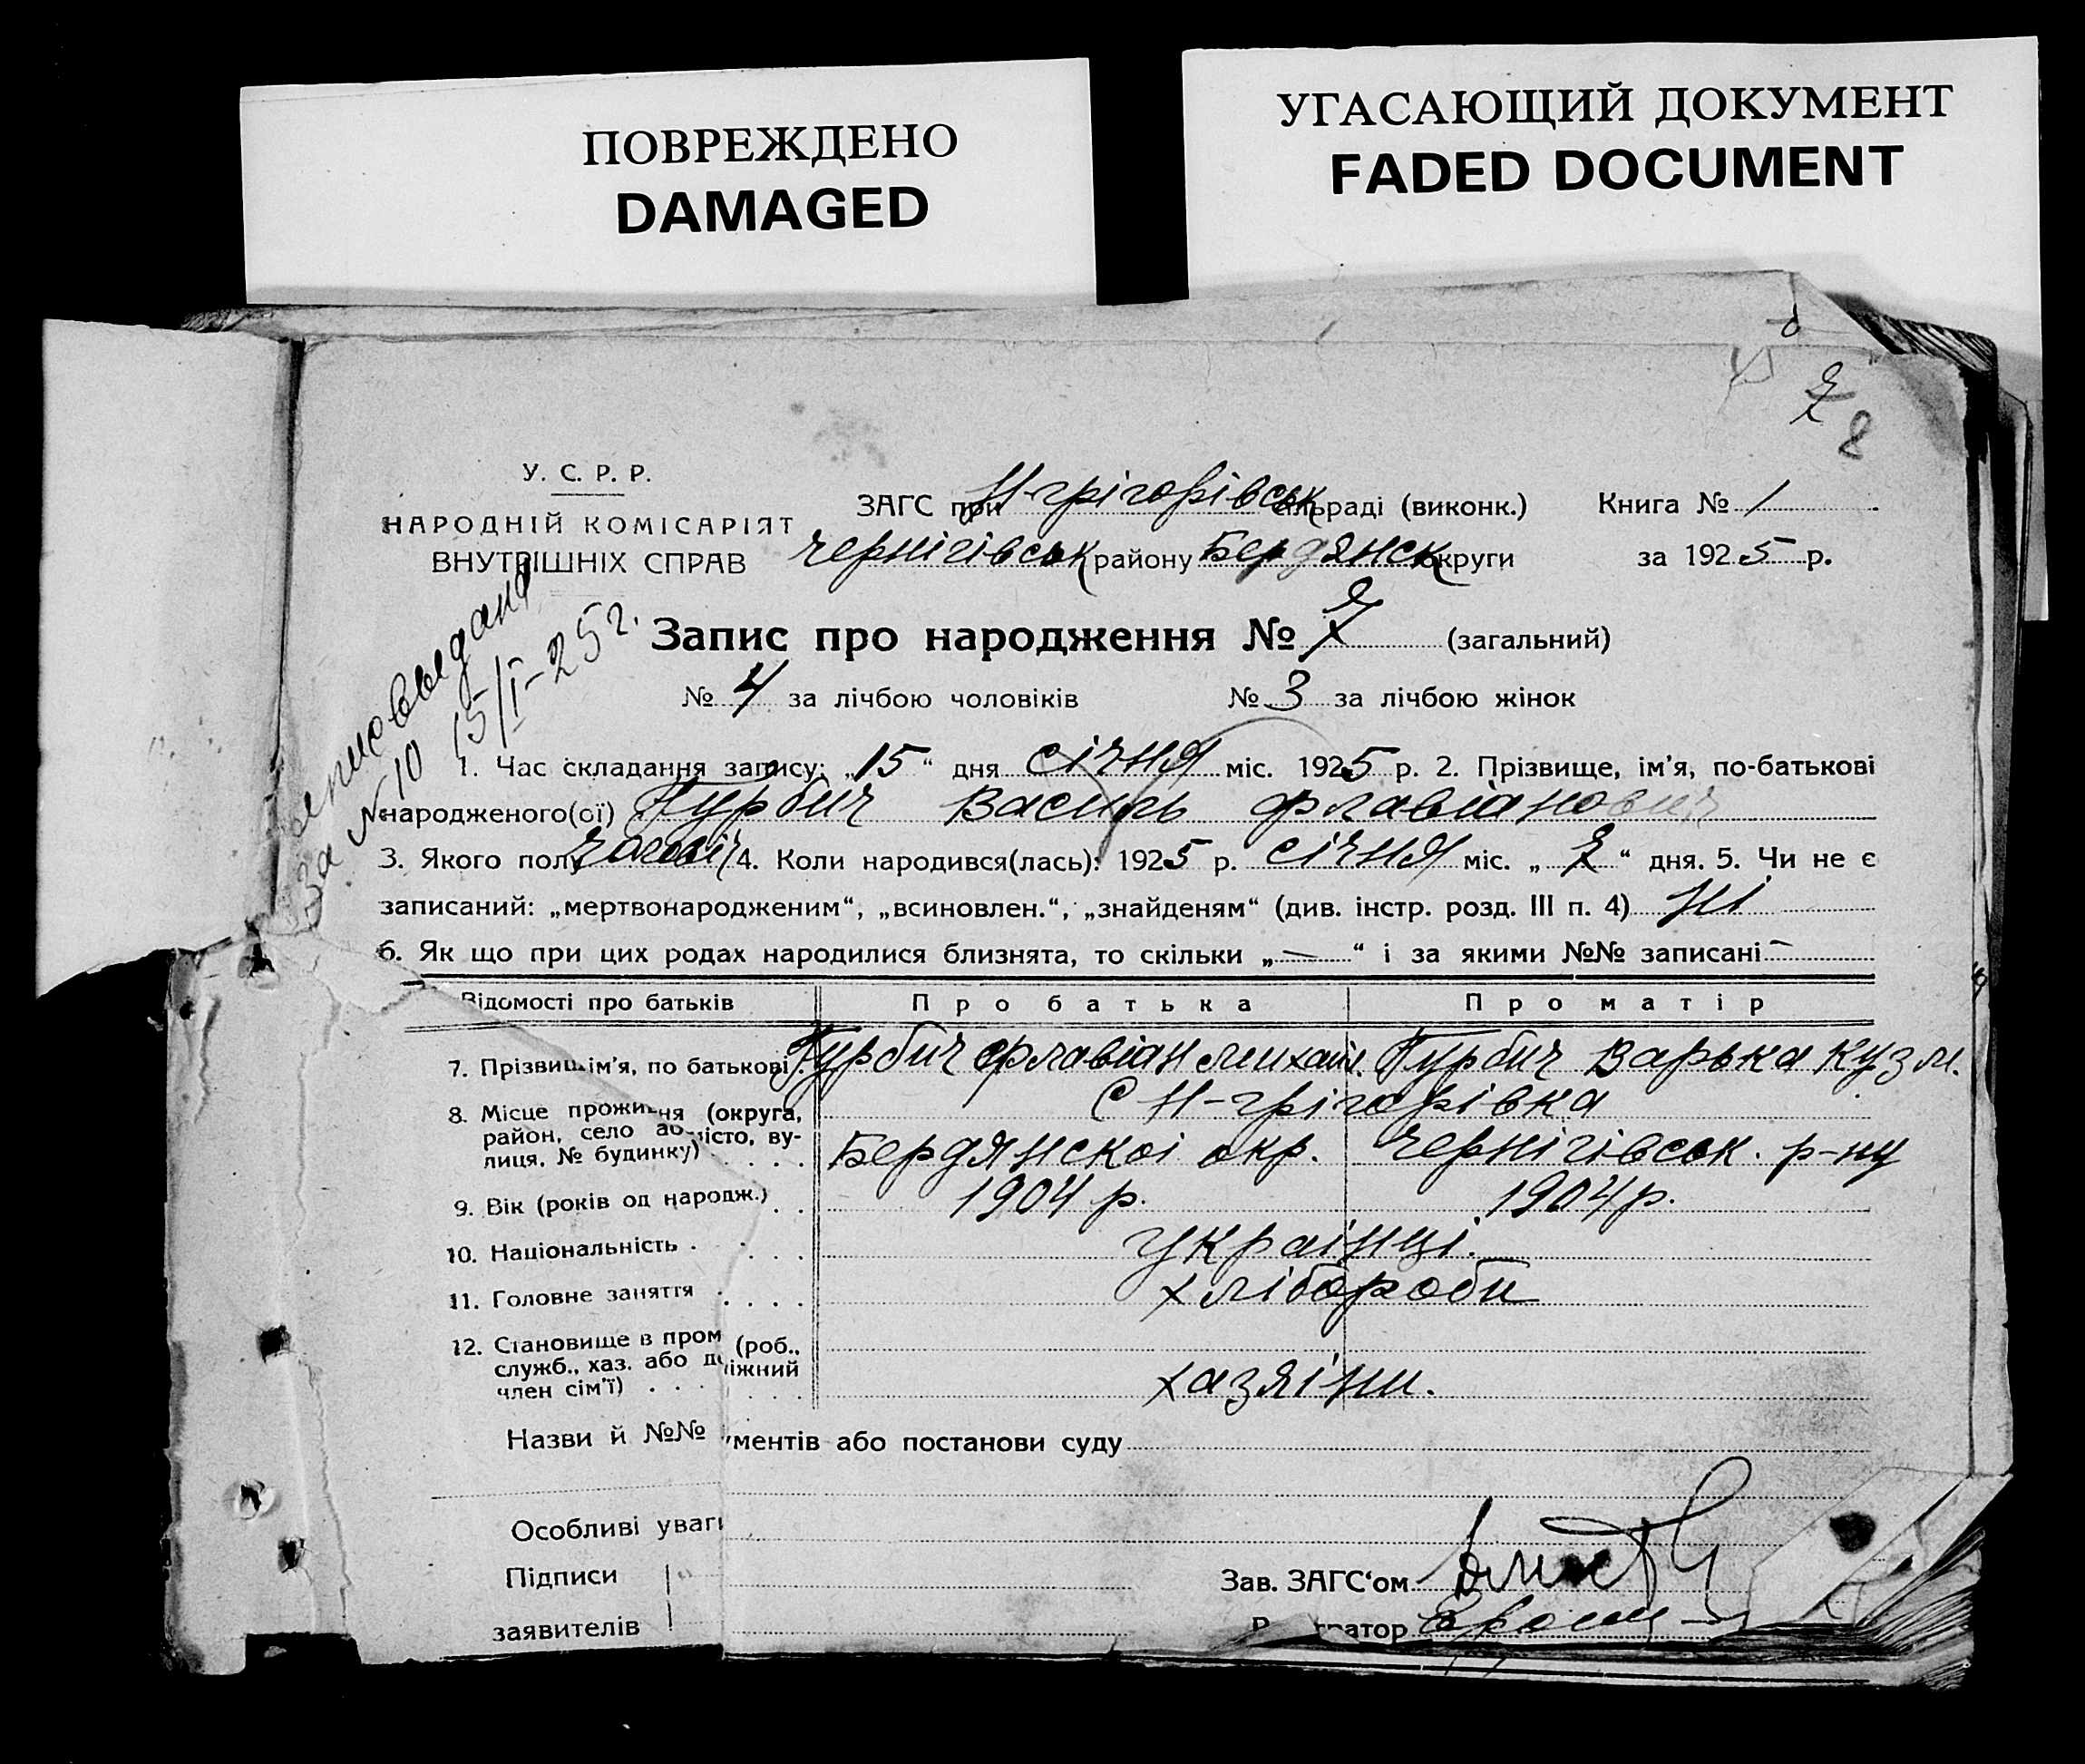 ПОВРЕЖДЕНО
DAMAGED
УГАСАЮЩИЙ ДОКУМЕНТ
FADED DOCUMENT
8
У. С. Р. Р.
НАРОДНІЙ КОМІСАРІЯТ
ВНУТРІШНІХ СПРАВ
ЗАГС при Н-грігорівськ сільраді (виконк.) Книга № 1
Чернігівськ району Бердянск округи за 1925 р.
15/I-25 г.
За № 10
Запис про народження № (загальний)
№ 4 за лічбою чоловіків № 3 за лічбою жінок
1. Час складання запису: „15“ дня січня міс. 1925 р. 2. Прізвище, ім'я, по-батькові
народженого(ої) Гурбич Василь Флавіанович
3. Якого полу чоловіч 4. Коли народився(лась): 1925 р. січня міс. „ “ дня. 5. Чи не є
записаний: „мертвонародженим“, „всиновлен.“, „знайденям“ (див. інстр. розд. III п. 4) ні
6. Як що при цих родах народилися близнята, то скільки „—“ і за якими №№ записані —
Відомості про батьків Про батька Про матір
7. Прізвищ ім'я, по батькові . Гурбич Флавіан Михайл. Гурбич Варька Кузм.
8. Місце прожи ня (округа, район, село аб істо, вулиця, № будинку) С Н-грігорівка
Бердянскоі окр. Чернігівськ. р-ну
9. Вік (років од народж.) 1904 р. 1904 р.
10. Національність . українці.
11. Головне заняття . хлібороби
12. Становище в пром (роб., служб., хаз. або до іжний член сім'ї) хазяіни.
Назви й №№ ументів або постанови суду
Особливі уваги
Підписи
заявителів
Зав. ЗАГС'ом
Р тратор